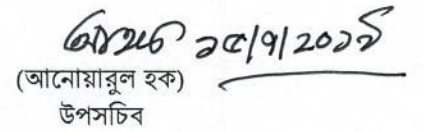 ১৫/৭/২০১৮
(আনোয়ারুল হক)
উপসচিব